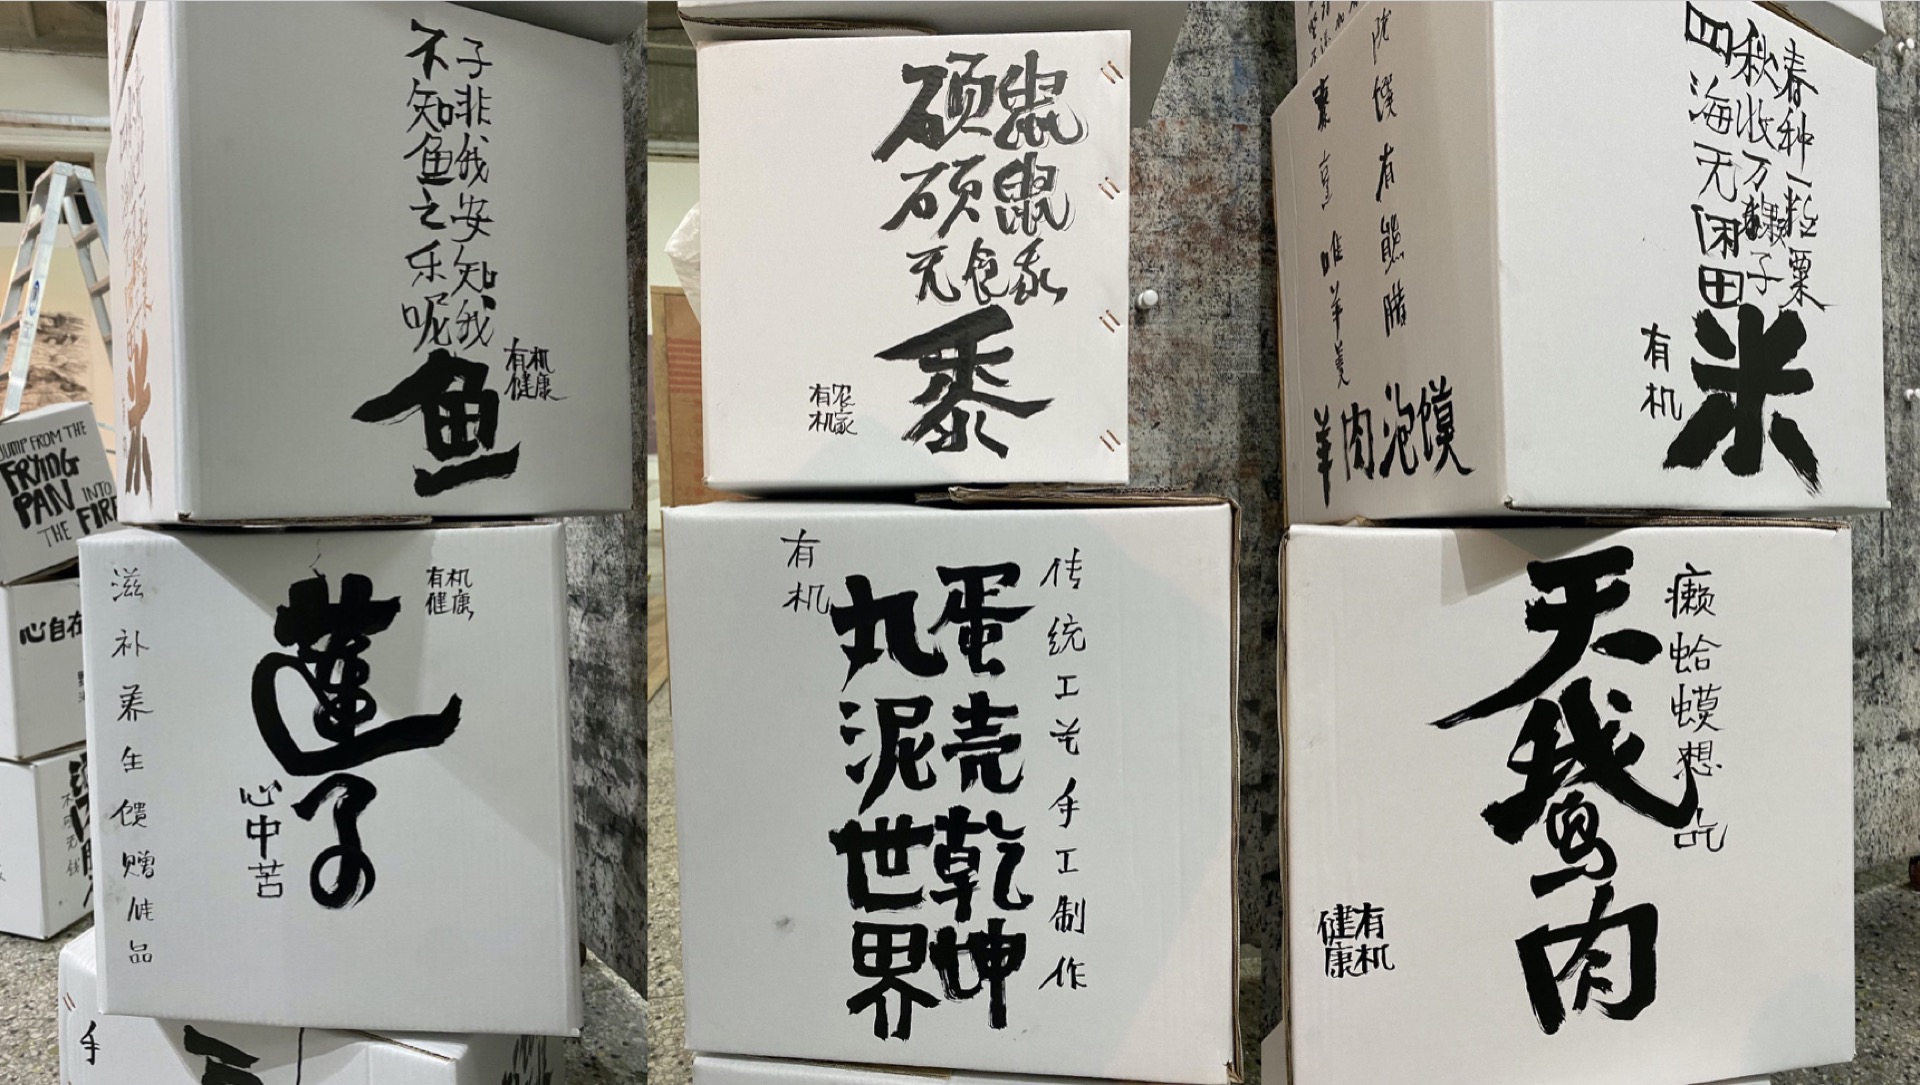 子非我安知我
不知鱼之乐呢
鱼
有机
健康
米
JUMP FROM THE
FRYING
PAN INTO
THE FIRE
心自在
有机
健康
蓮子
心中苦
滋补养生馈赠佳品
手
硕鼠
硕鼠
无食我
黍
农家
有机
传统工艺手工制作
蛋壳乾坤
丸泥世界
有机
春种一粒粟
秋收万颗子
四海无闲田
米
有机
陇馔有熊腊
烹唯羊羹
羊肉泡馍
癞蛤蟆想吃
天鹅肉
有机
健康